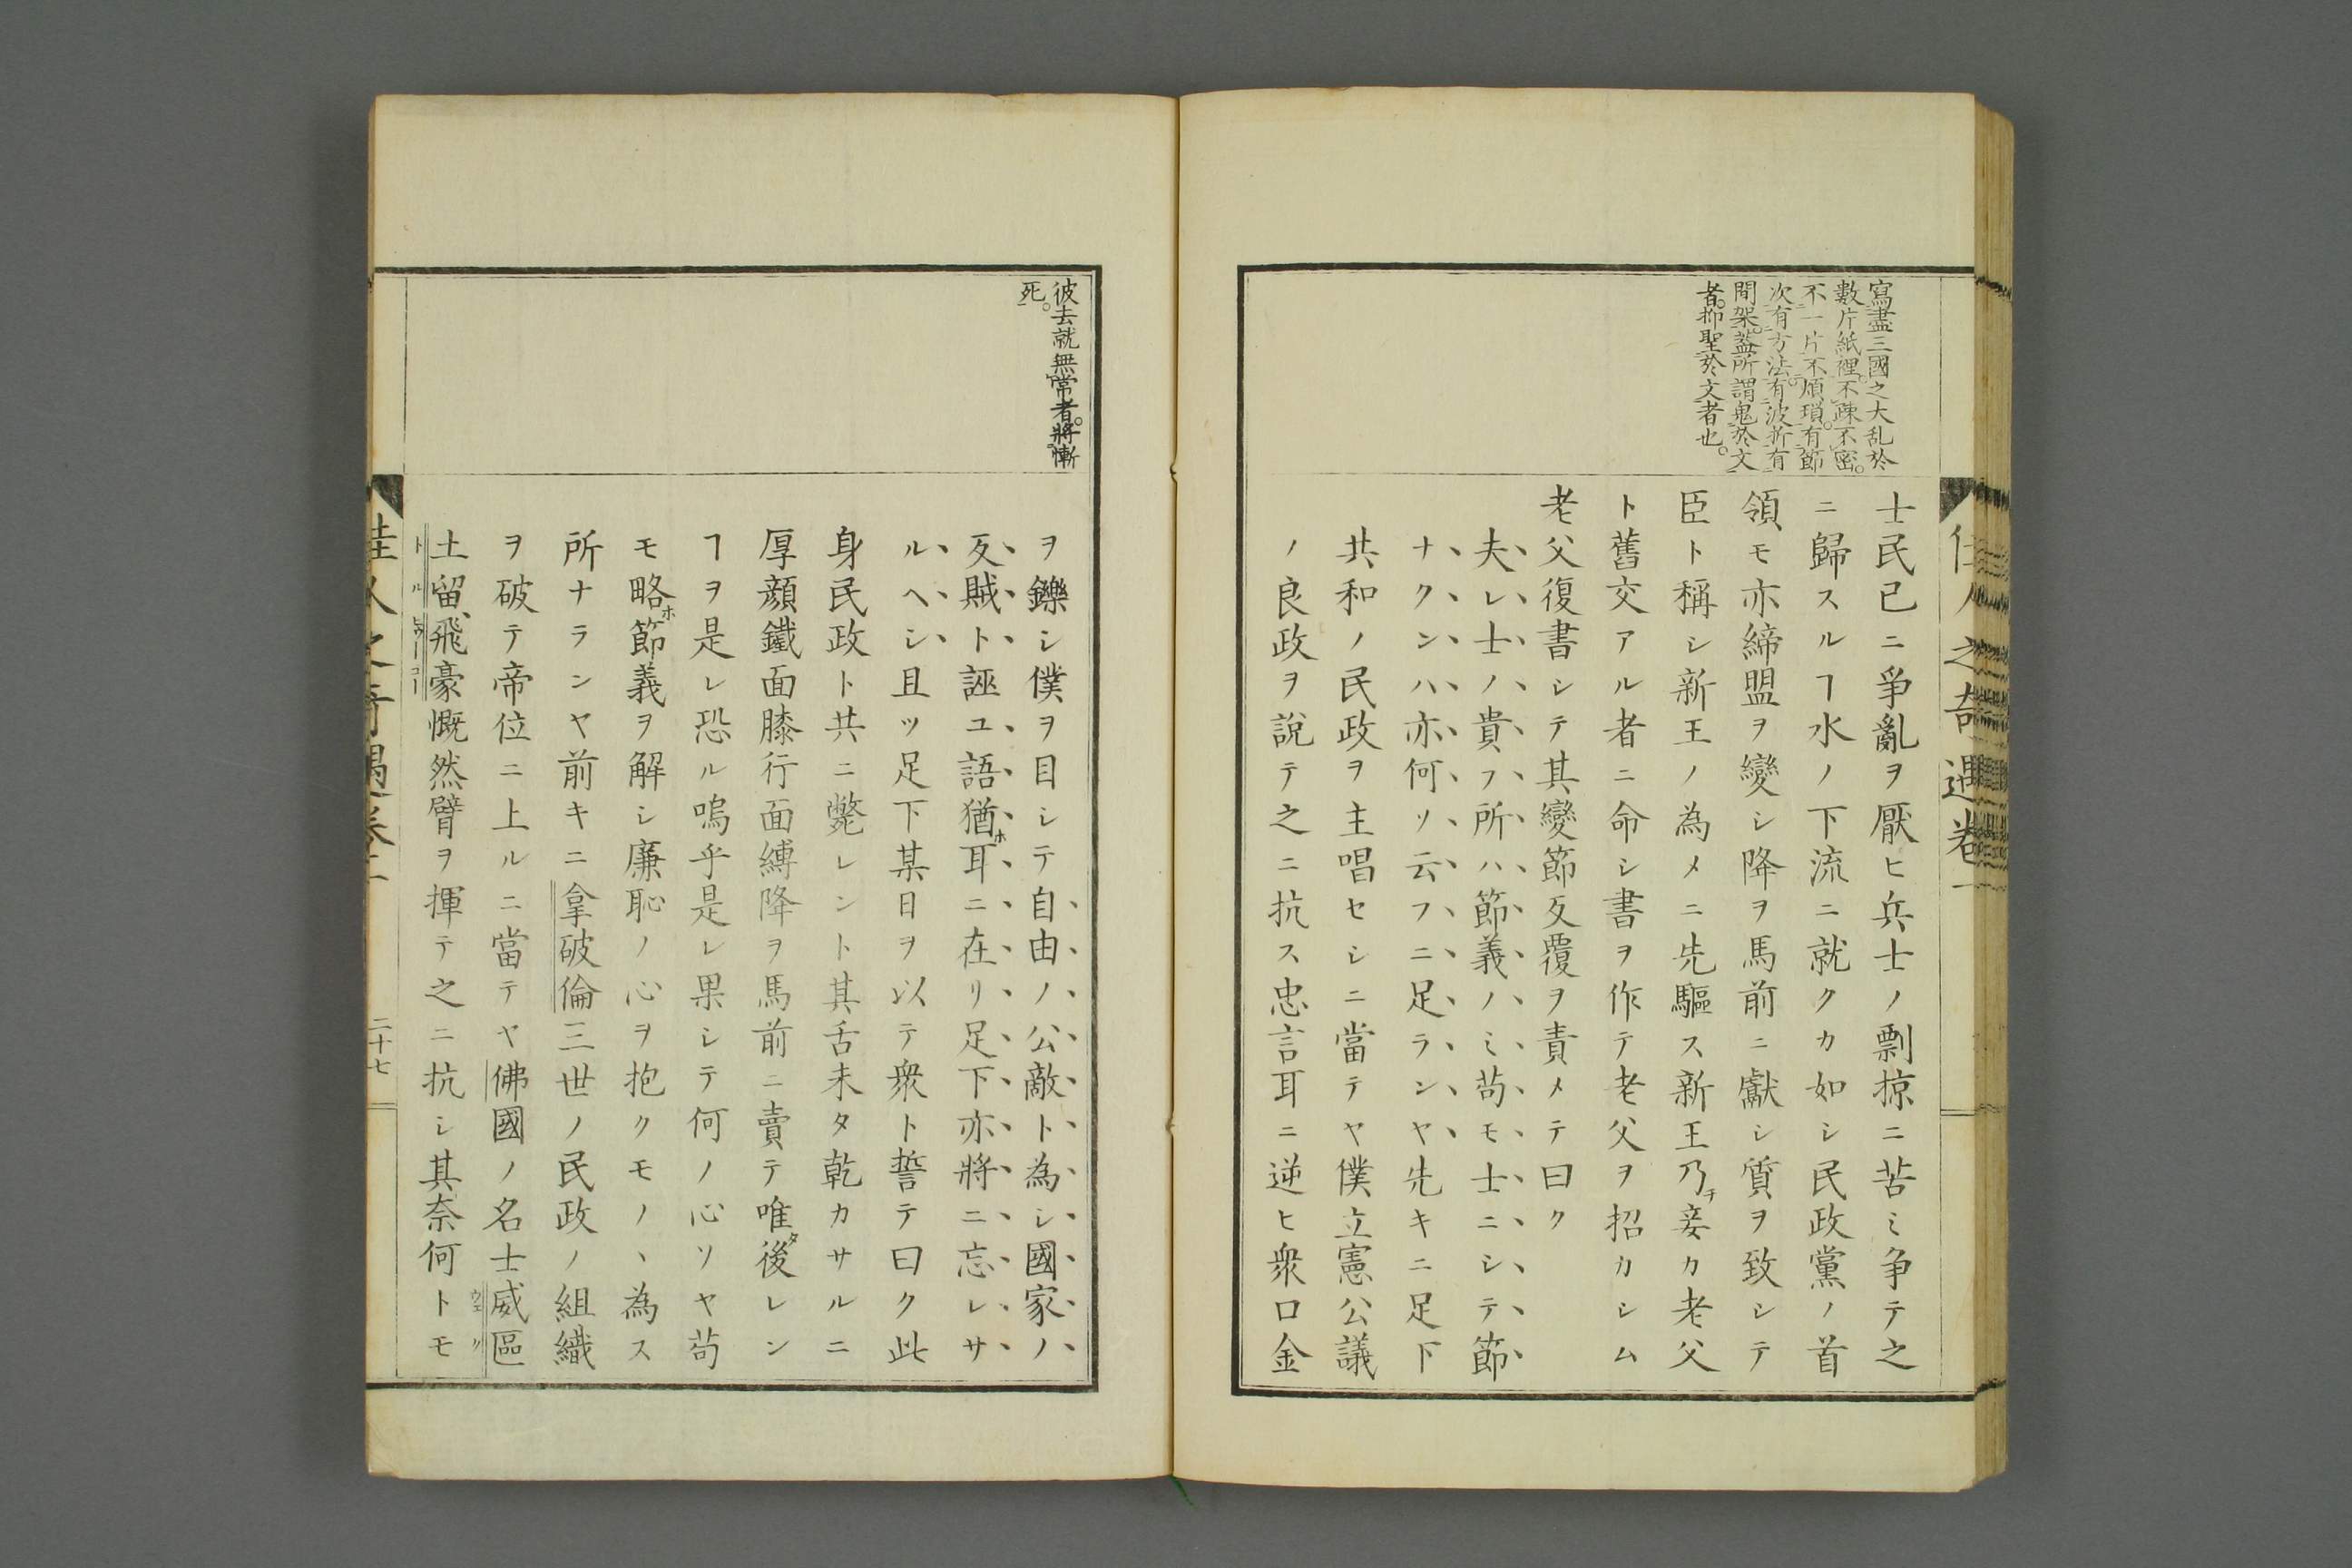 佳人之奇遇卷一
寫盡三國之大乱於
數片紙裡。不疎不密。
不一片不煩瑣。有節
次有方法。有波折有
間架。蓋所謂鬼於文
者。抑聖於文者也。
士民已ニ爭亂ヲ厭ヒ兵士ノ剽掠ニ苦ミ争テ之
ニ歸スルヿ水ノ下流ニ就クカ如シ民政黨ノ首
領モ亦締盟ヲ變シ降ヲ馬前ニ獻シ質ヲ致シテ
臣ト稱シ新王ノ為メニ先驅ス新王乃チ妾カ老父
ト舊交アル者ニ命シ書ヲ作テ老父ヲ招カシム
老父復書シテ其變節反覆ヲ責メテ曰ク
夫レ士ノ貴フ所ハ節義ノミ苟モ士ニシテ節
ナクンハ亦何ソ云フニ足ランヤ先キニ足下
共和ノ民政ヲ主唱セシニ當テヤ僕立憲公議
ノ良政ヲ說テ之ニ抗ス忠言耳ニ逆ヒ衆口金
彼去就無常者。將慚
死。
ヲ鑠シ僕ヲ目シテ自由ノ公敵ト為シ國家ノ
反賊ト誣ユ語猶ホ耳ニ在リ足下亦將ニ忘レサ
ルヘシ且ツ足下某日ヲ以テ衆ト誓テ曰ク此
身民政ト共ニ斃レント其舌未タ乾カサルニ
厚顔鐵面膝行面縛降ヲ馬前ニ賣テ唯タ後レン
ヿヲ是レ恐ル嗚乎是レ果シテ何ノ心ソヤ苟
モ略ホ節義ヲ解シ廉恥ノ心ヲ抱クモノヽ為ス
所ナランヤ前キニ拿破倫三世ノ民政ノ組織
ヲ破テ帝位ニ上ルニ當テヤ佛國ノ名士威區
土留、飛豪慨然臂ヲ揮テ之ニ抗シ其奈何トモ
佳人之奇遇卷一
二十七